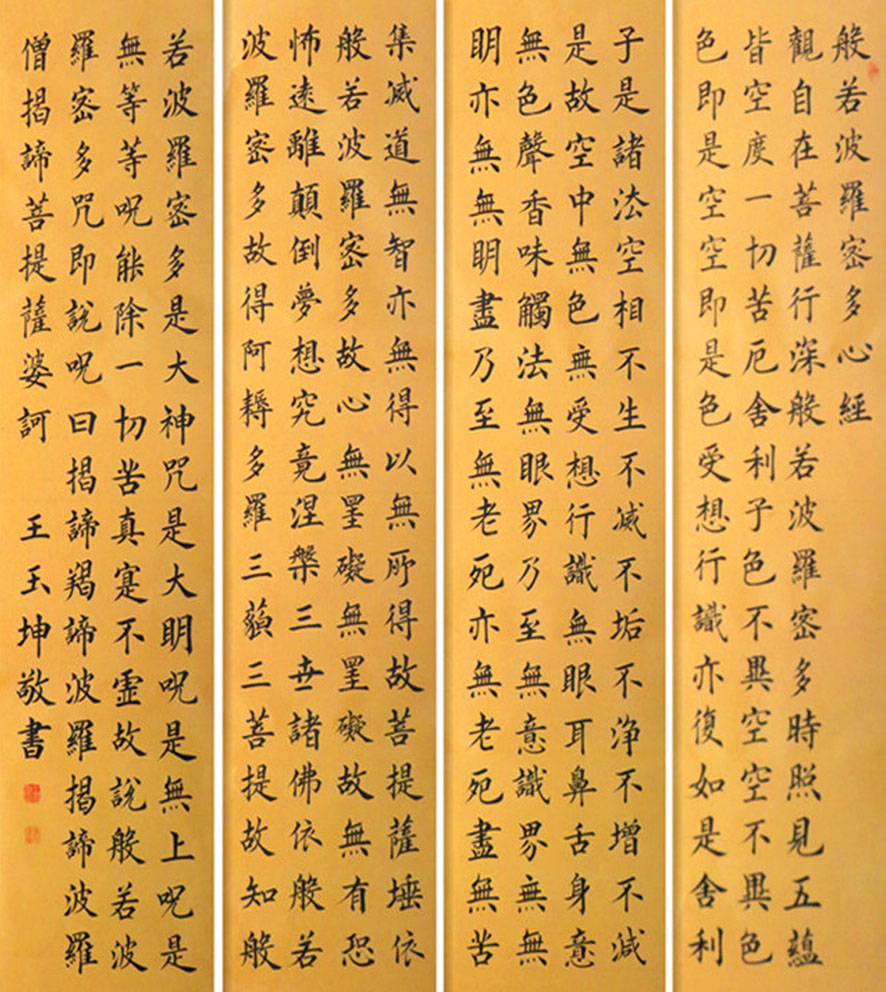 般若波羅密多心經
觀自在菩薩行深般若波羅密多時照見五蘊
皆空度一切苦厄舍利子色不異空空不異色
色即是空空即是色受想行識亦復如是舍利
子是諸法空相不生不滅不垢不浄不增不減
是故空中無色無受想行識無眼耳鼻舌身意
無色聲香味觸法無眼界乃至無意識界無無
眀亦無無眀盡乃至無老死亦無老死盡無苦
集滅道無智亦無得以無所得故菩提薩埵依
般若波羅密多故心無罣礙無罣礙故無有恐
怖遠離顛倒夢想究竟涅槃三世諸佛依般若
波羅密多故得阿耨多羅三藐三菩提故知般
若波羅密多是大神咒是大眀呪是無上呪是
無等等呪能除一切苦真寔不虛故說般若波
羅密多咒即說呪曰揭諦羯諦波羅揭諦波羅
僧揭諦菩提薩婆訶 王玉坤敬書